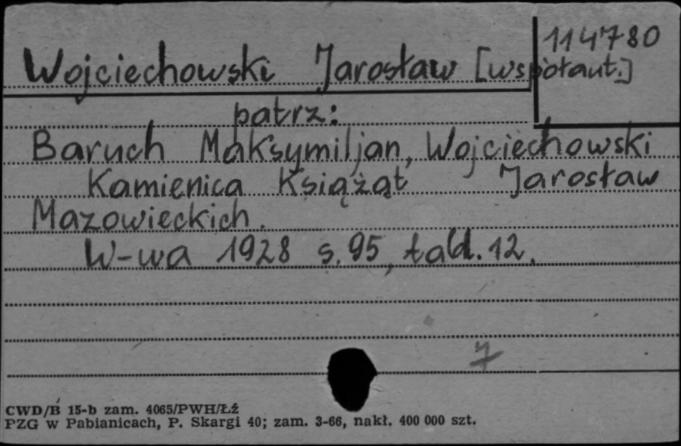 114780
Wojciechowski Jarosław [współaut.]
patrz:
Baruch Maksymiljan, Wojciechowski
Kamienica Książąt Jarosław
Mazowieckich.
W-wa 1928 s. 95, tabl. 12.
7
CWD/B 15-b zam. 4065/PWH/Łź
PZG w Pabianicach, P. Skargi 40; zam. 3-66, nakł. 400 000 szt.